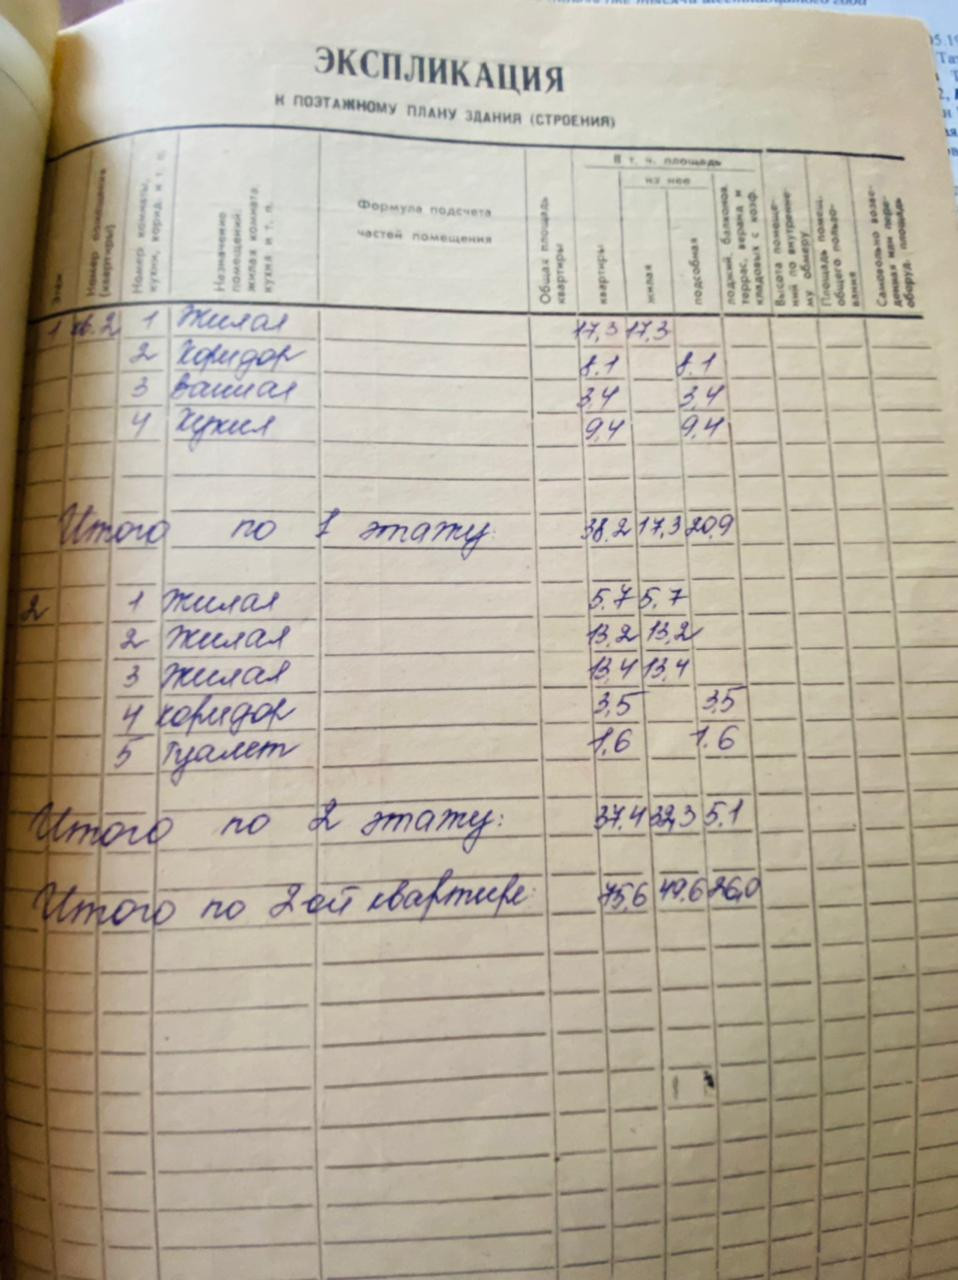 ЭКСПЛИКАЦИЯ
К ПОЭТАЖНОМУ ПЛАНУ ЗДАНИЯ (СТРОЕНИЯ)
Этаж
Номер помещения (квартиры)
Номер комнаты, кухни, корид. и т. п.
Назначение помещений: жилая комната, кухня и т. п.
Формула подсчета
частей помещения
Общая площадь квартиры
В т. ч. площадь
квартиры
из нее
жилая
подсобная
лоджий, балконов, террас, веранд и кладовых с коэф.
Высота помещений по внутреннему обмеру
Площадь помещ. общего пользования
Самовольно возведенная или переоборуд. площадь
1 кв. 2 1 Жилая 17,3 17,3
2 Коридор 8.1 8.1
3 Ванная 3,4 3,4
4 Кухня 9,4 9,4
Итого по 1 этажу: 38,2 17,3 20,9
2 1 Жилая 5,7 5,7
2 Жилая 13,2 13,2
3 Жилая 13,4 13,4
4 коридор 3,5 3,5
5 туалет 1,6 1.6
Итого по 2 этажу: 37,4 32,3 5,1
Итого по 2-ой квартире: 75,6 49,6 26,0